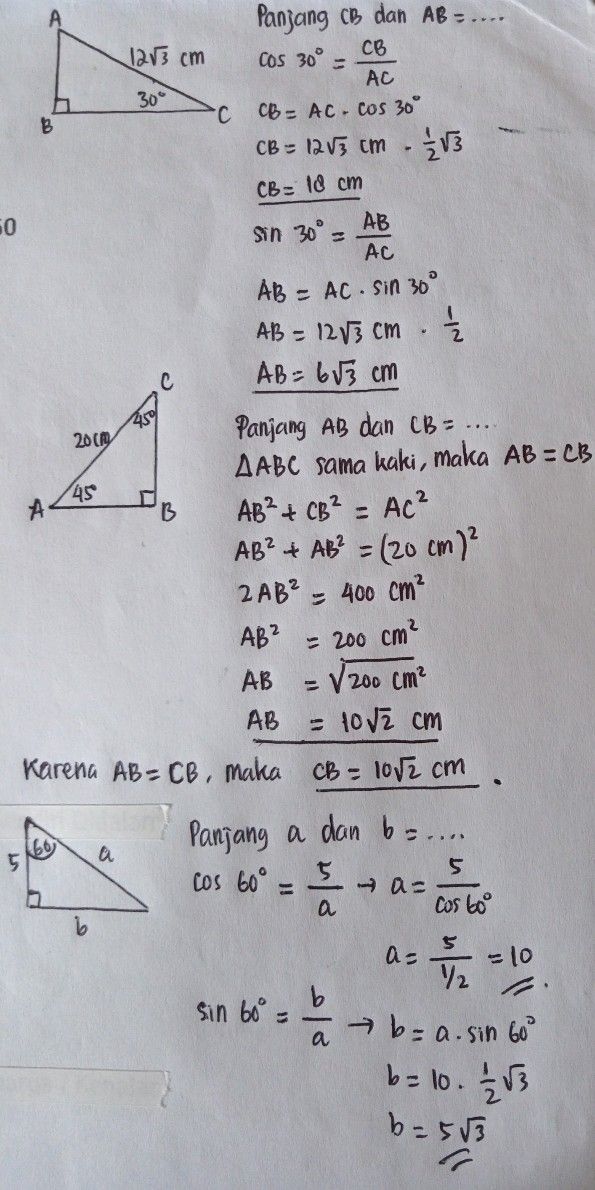 A
12√3 cm
30°
B
C
Panjang CB dan AB = ....
cos 30° = CB/AC
CB = AC . cos 30°
CB = 12√3 cm . 1/2 √3
CB = 18 cm
sin 30° = AB/AC
AB = AC . sin 30°
AB = 12√3 cm . 1/2
AB = 6√3 cm
C
45°
20 cm
45°
A
B
Panjang AB dan CB = ....
△ABC sama kaki, maka AB = CB
AB² + CB² = AC²
AB² + AB² = (20 cm)²
2AB² = 400 cm²
AB² = 200 cm²
AB = √200 cm²
AB = 10√2 cm
Karena AB = CB, maka CB = 10√2 cm .
5
60
a
b
Panjang a dan b = ....
cos 60° = 5/a → a = 5/cos 60°
a = 5/1/2 = 10
sin 60° = b/a → b = a . sin 60°
b = 10 . 1/2 √3
b = 5√3